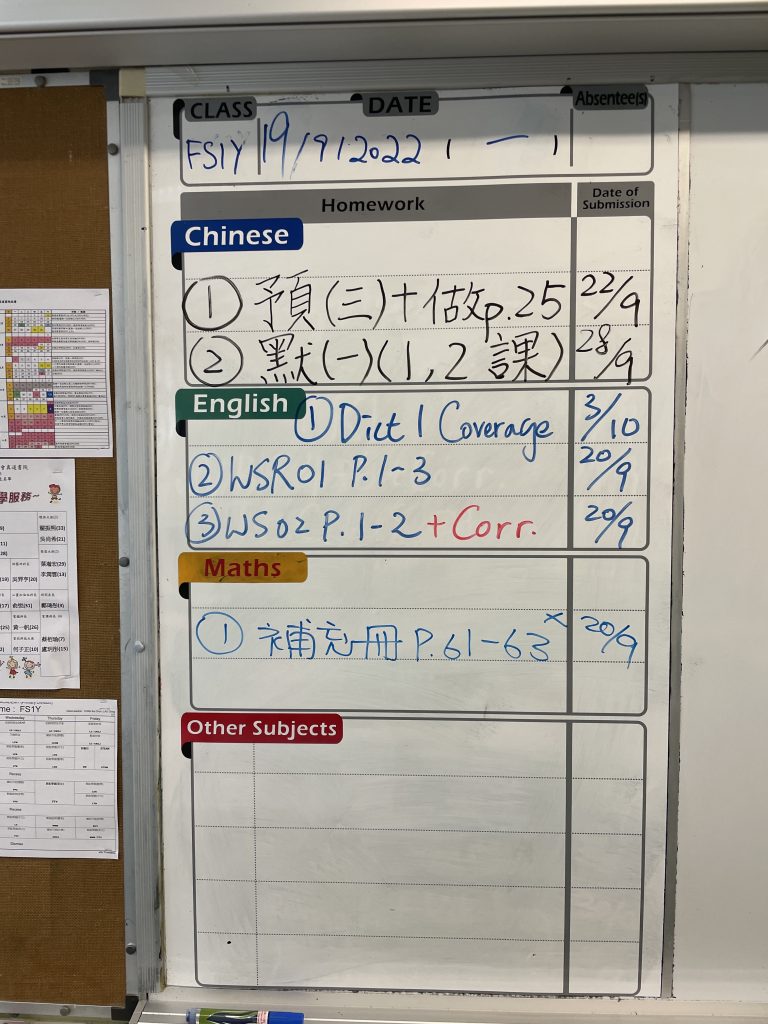 CLASS DATE Absentee(s)
FS1Y 19/9/2022 ( 一 )
Homework Date of Submission
Chinese
① 預(三)十做p.25 22/9
② 默(一)(1,2 課) 28/9
English ① Dict 1 Coverage 3/10
② WSR01 P.1-3 20/9
③ WS02 P.1-2 + Corr. 20/9
Maths
① 補充冊 P.61-63 x 20/9
Other Subjects
學服務~
me : FS1Y
Wednesday Thursday Friday
Recess
Recess